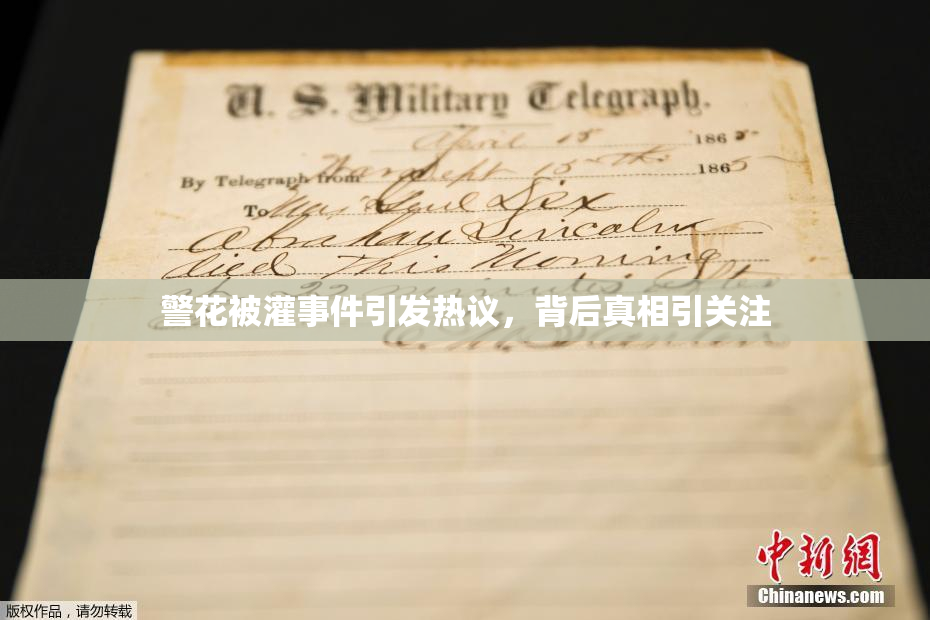 U. S. Military Telegraph.
April 15 1865
By Telegraph from War Dept 15th 1865
To Maj Genl Dix
Abraham Lincoln
died This Morning
at 22 minutes after
警花被灌事件引发热议，背后真相引关注
中新网
Chinanews.com
版权作品，请勿转载